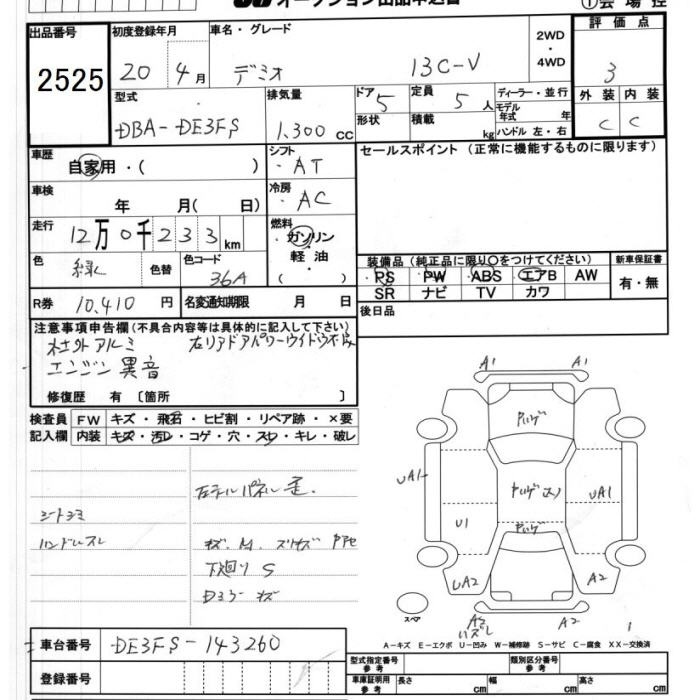 オークション出品申込書
①会場控
出品番号
2525
初度登録年月
20 4月
車名・グレード
デミオ 13C-V
2WD・4WD
評価点
3
外装 内装
C C
型式
DBA-DE3FS
排気量
1,300 cc
ドア 5
形状
定員 5 人
積載 kg
ディーラー・並行
モデル年式 年
ハンドル 左・右
車歴
自家用・( )
シフト
AT
セールスポイント (正常に機能するものに限ります)
車検
年 月( 日)
冷房
AC
走行
12万0千233km
燃料
ガソリン・軽油・( )
色
緑
色替
色コード
36A
装備品 (純正品に限り○をつけてください)
PS PW ABS エアB AW
SR ナビ TV カワ
新車保証書
有・無
R券 10,410 円
名変通知期限 月 日
後日品
注意事項申告欄(不具合内容等は具体的に記入して下さい)
社外アルミ 右リアドアパワーウインドウ不良
エンジン異音
修復歴 有 〔箇所 〕
検査員記入欄
FW キズ・飛石・ヒビ割・リペア跡・×要
内装 キズ・汚レ・コゲ・穴・スレ・キレ・破レ
左テールパネル歪.
シートシミ
ハンドルスレ
下廻り S
Dミラーキズ
A1 A1
UA1 UA1
U1
UA2 A2
A2 A2
スペア
A-キズ E-エクボ U-凹み W-補修跡 S-サビ C-腐食 XX-交換済
車台番号
DE3FS-143260
登録番号
型式指定番号 参考
類別区分番号 参考
車庫証明用 参考
長さ cm 幅 cm 高さ cm